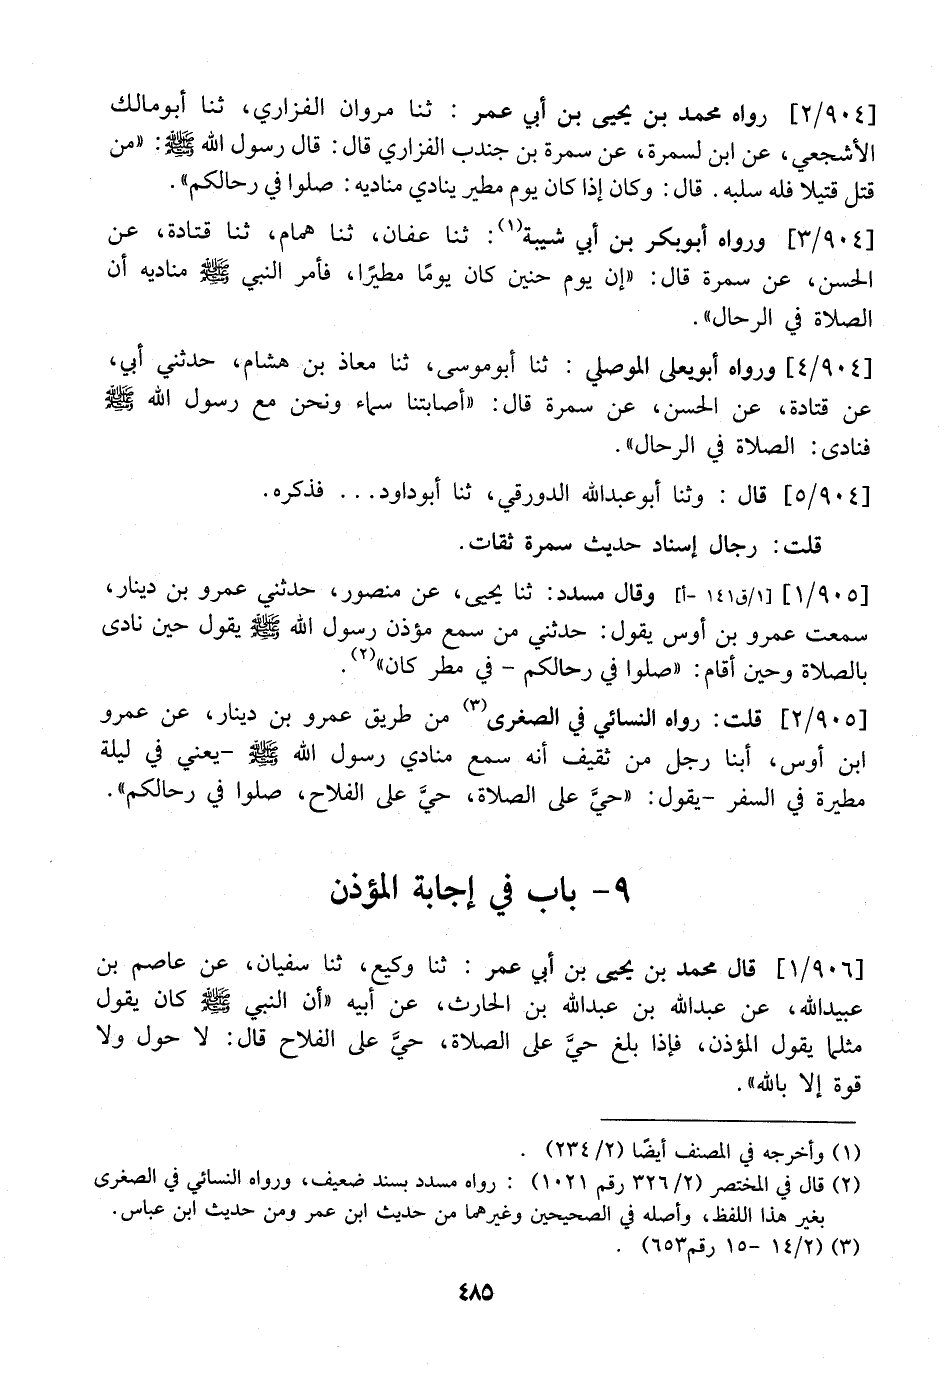 [٢/٩٠٤] رواه محمد بن يحيى بن أبي عمر : ثنا مروان الفزاري، ثنا أبومالك
الأشجعي، عن ابن لسمرة، عن سمرة بن جندب الفزاري قال: قال رسول الله ﷺ: «من
قتل قتيلا فله سلبه. قال: وكان إذا كان يوم مطير ينادي مناديه: صلوا في رحالكم».
[٣/٩٠٤] ورواه أبوبكر بن أبي شيبة(١): ثنا عفان، ثنا همام، ثنا قتادة، عن
الحسن، عن سمرة قال: «إن يوم حنين كان يومًا مطيرًا، فأمر النبي ﷺ مناديه أن
الصلاة في الرحال».
[٤/٩٠٤] ورواه أبويعلى الموصلي : ثنا أبوموسى، ثنا معاذ بن هشام، حدثني أبي،
عن قتادة، عن الحسن، عن سمرة قال: «أصابتنا سماء ونحن مع رسول الله ﷺ
فنادى: الصلاة في الرحال».
[٥/٩٠٤] قال : وثنا أبوعبدالله الدورقي، ثنا أبوداود... فذكره.
قلت: رجال إسناد حديث سمرة ثقات.
[١/٩٠٥] [١/ق١٤١ -أ] وقال مسدد: ثنا يحيى، عن منصور، حدثني عمرو بن دينار،
سمعت عمرو بن أوس يقول: حدثني من سمع مؤذن رسول الله ﷺ يقول حين نادى
بالصلاة وحين أقام: «صلوا في رحالكم - في مطر كان»(٢).
[٢/٩٠٥] قلت: رواه النسائي في الصغرى(٣) من طريق عمرو بن دينار، عن عمرو
ابن أوس، أبنا رجل من ثقيف أنه سمع منادي رسول الله ﷺ -يعني في ليلة
مطيرة في السفر -يقول: «حيَّ على الصلاة، حيَّ على الفلاح، صلوا في رحالكم».
٩- باب في إجابة المؤذن
[١/٩٠٦] قال محمد بن يحيى بن أبي عمر : ثنا وكيع، ثنا سفيان، عن عاصم بن
عبيدالله، عن عبدالله بن عبدالله بن الحارث، عن أبيه «أن النبي ﷺ كان يقول
مثلما يقول المؤذن، فإذا بلغ حيَّ على الصلاة، حيَّ على الفلاح قال: لا حول ولا
قوة إلا بالله».
(١) وأخرجه في المصنف أيضًا (٢/ ٢٣٤) .
(٢) قال في المختصر (٢/ ٣٢٦ رقم ١٠٢١) : رواه مسدد بسند ضعيف، ورواه النسائي في الصغرى
بغير هذا اللفظ، وأصله في الصحيحين وغيرهما من حديث ابن عمر ومن حديث ابن عباس.
(٣) (١٤/٢ -١٥ رقم٦٥٣) .
٤٨٥